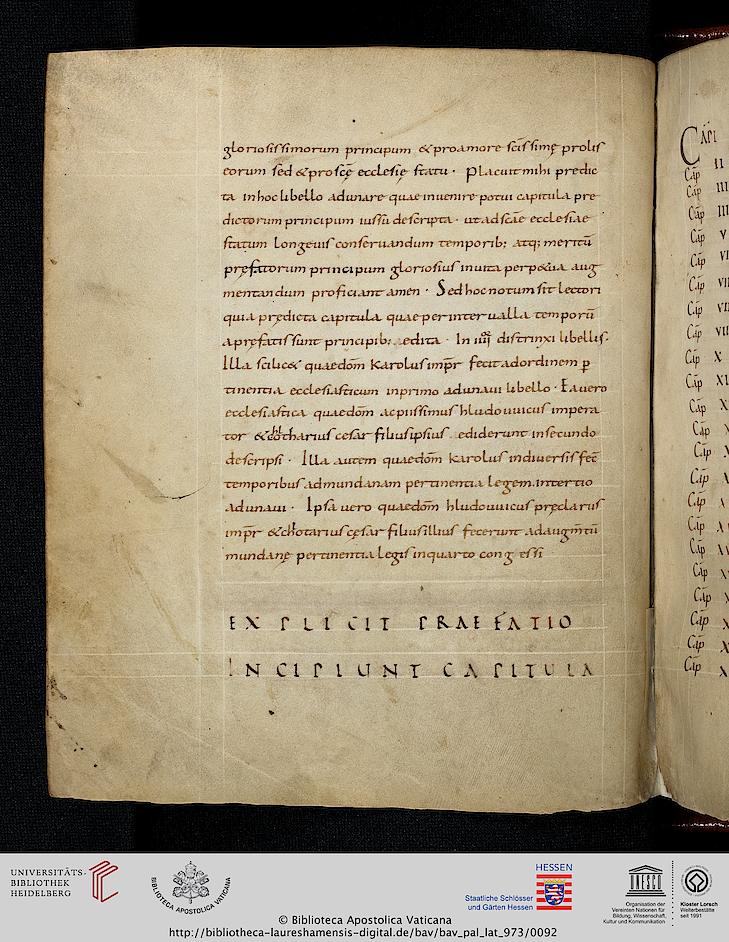 gloriosissimorum principum & pro amore sc̄issimę prolis
eorum sed & pro scę ecclesię statu · Placuit mihi predic
ta in hoc libello adunare quae invenire potui capitula pre
dictorum principum iussu descripta · ut ad scāe ecclesiae
statum longevis conservandum temporib; atq; meritū
prefatorum principum gloriosius in vita perp&ua aug
mentandum proficiant amen · Sed hoc notum sit lectori
quia prędicta capitula quae per intervalla temporū
a prefatis sunt principib; edita · In iiii distinxi libellis·
Illa scilic& quaedōm karolus imp̄r fecit ad ordinem ꝑ
tinentia ecclesiasticum in primo adunavi libello · Ea vero
ecclesiastica quaedōm ac piissimus hludouuicus impera
tor & hlotharius cesar filius ipsius ediderunt in secundo
descripsi · Illa autem quaedōm karolus in diversis fec̄
temporibus ad mundanam pertinentia legem in tertio
adunavi · Ipsa vero quaedōm hludouuicus pręclarus
imp̄r & hlotarius cęsar filius illius fecerunt ad augm̄tū
mundanę pertinentia legis in quarto congessi
EXPLICIT PRAEFATIO
INCIPIUNT CAPITULA
CAPI
Cap̄ II
Cap̄ III
Cap̄ III
Cap̄ V
Cap̄ VI
Cap̄ VII
Cap̄ VII
Cap̄ VII
Cap̄ X
Cap̄ XI
Cap̄ X
Cap̄ X
Cap̄ X
Cap̄ X
Cap̄
Cap̄ X
Cap̄ X
Cap̄ X
Cap̄ X
Cap̄ X
Cap̄ X
Cap̄ X
UNIVERSITÄTS-
BIBLIOTHEK
HEIDELBERG
BIBLIOTECA APOSTOLICA VATICANA
HESSEN
Staatliche Schlösser
und Gärten Hessen
UNESCO
Organisation der
Vereinten Nationen für
Bildung, Wissenschaft,
Kultur und Kommunikation
Kloster Lorsch
Welterbestätte
seit 1991
© Biblioteca Apostolica Vaticana
http://bibliotheca-laureshamensis-digital.de/bav/bav_pal_lat_973/0092